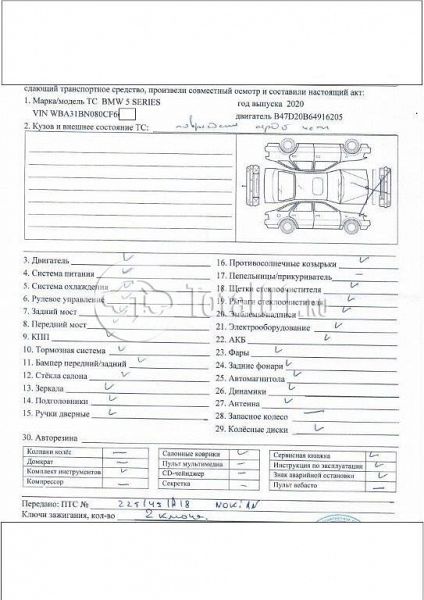 сдающий транспортное средство, произвели совместный осмотр и составили настоящий акт:
1. Марка/модель ТС BMW 5 SERIES год выпуска 2020
VIN WBA31BN080CF6 двигатель B47D20B64916205
2. Кузов и внешнее состояние ТС: повреждение части
3. Двигатель
4. Система питания
5. Система охлаждения
6. Рулевое управление
7. Задний мост
8. Передний мост
9. КПП
10. Тормозная система
11. Бампер передний/задний
12. Стёкла салона
13. Зеркала
14. Подголовники
15. Ручки дверные
16. Противосолнечные козырьки
17. Пепельницы/прикуриватель
18. Щетки стеклоочистителя
19. Рычаги стеклоочистителя
20. Эмблемы/надписи
21. Электрооборудование
22. АКБ
23. Фары
24. Задние фонари
25. Автомагнитола
26. Динамики
27. Антенна
28. Запасное колесо
29. Колёсные диски
30. Авторезина
Колпаки колёс
Домкрат
Комплект инструментов
Компрессор
Салонные коврики
Пульт мультимедиа
CD-чейнджер
Секретка
Сервисная книжка
Инструкция по эксплуатации
Знак аварийной остановки
Пульт вебасто
Передано: ПТС № 225/45 R18 NOKIAN
Ключи зажигания, кол-во 2 ключа